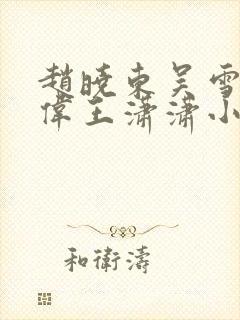 趙曉東吳雪
偉王瀟瀟小
和衛濤